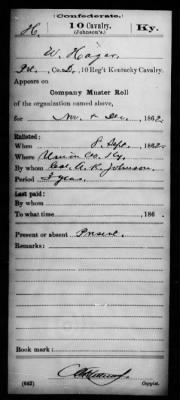 (Confederate.)
H. 10 Cavalry. Ky.
(Johnson's.)
W. Hager
Pvt., Co. D, 10 Reg't Kentucky Cavalry.
Appears on
Company Muster Roll
of the organization named above,
for Nov. & Dec., 1862.
Enlisted:
When 8 Sept., 1862.
Where Union Co. Ky.
By whom Col. A. R. Johnson
Period 3 years
Last paid:
By whom
To what time , 186 .
Present or absent Present
Remarks:
Book mark:
(642) Copyist.